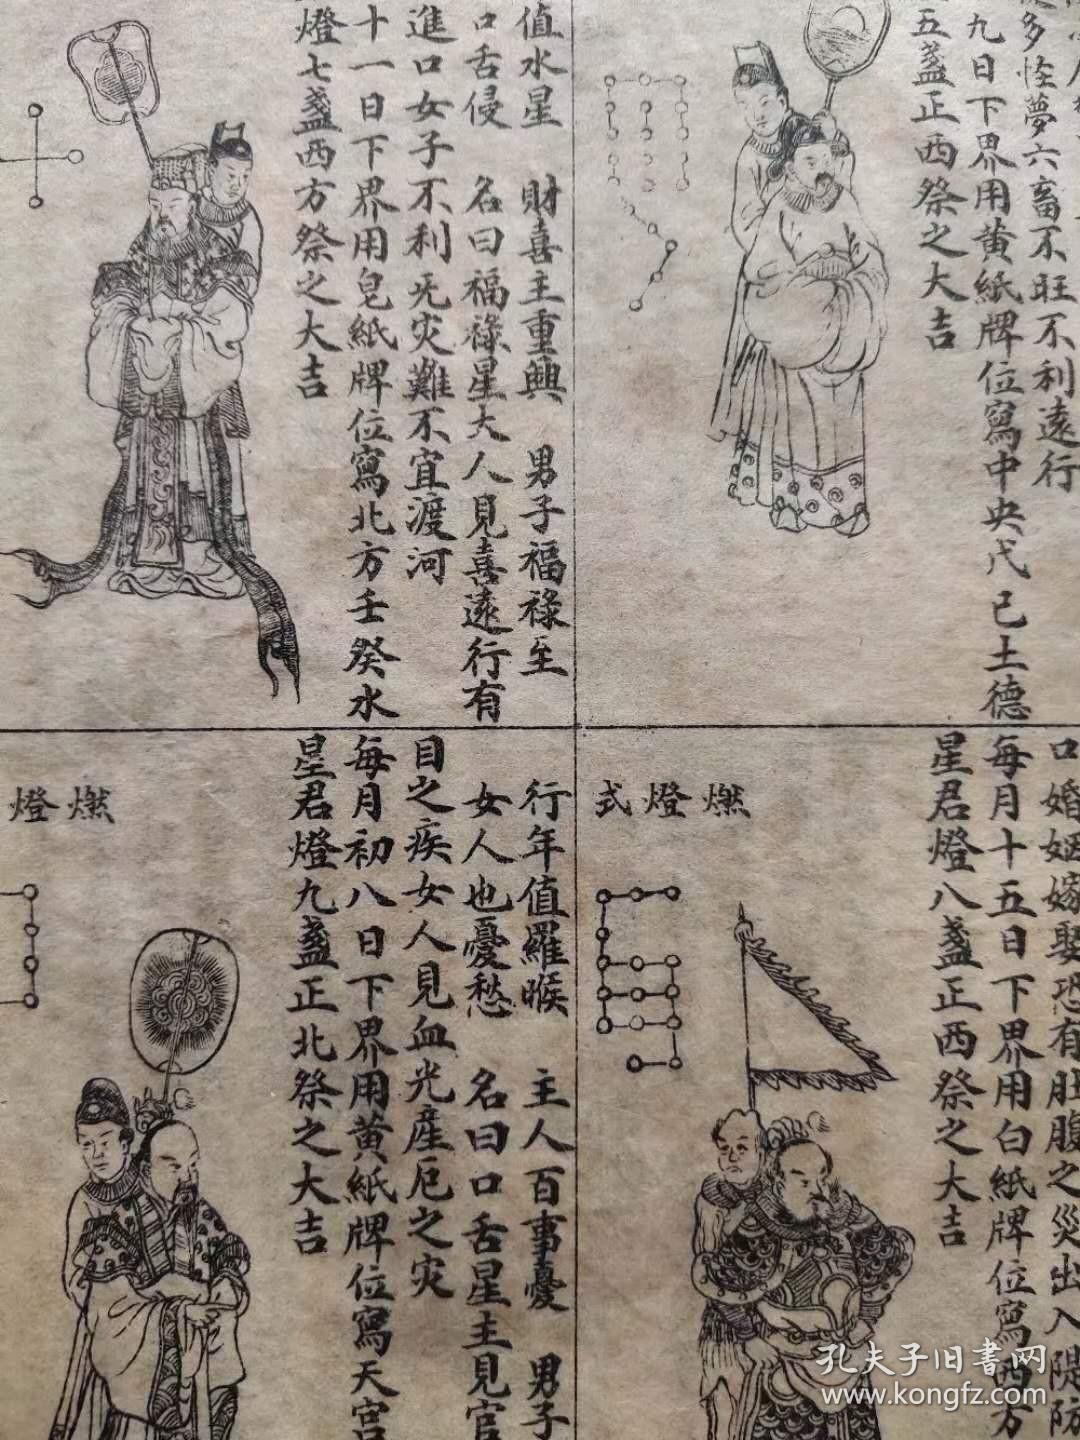 多怪夢六畜不旺不利遠行
九日下界用黄紙牌位寫中央戊己土德
五盞正西祭之大吉
值水星　財喜主重興　男子福祿至
口舌侵　名曰福祿星大人見喜遠行有
進口女子不利旡灾難不宜渡河
十一日下界用皂紙牌位寫北方壬癸水
燈七盞西方祭之大吉
口婚姻嫁娶恐有肚腹之災出入隄防
每月十五日下界用白紙牌位寫西方
星君燈八盞正西祭之大吉
燃燈式
行年值羅睺　主人百事憂　男子
女人也憂愁　名曰口舌星主見官
目之疾女人見血光產厄之灾
每月初八日下界用黄紙牌位寫天宫
星君燈九盞正北祭之大吉
燃燈
孔夫子旧书网
www.kongfz.com